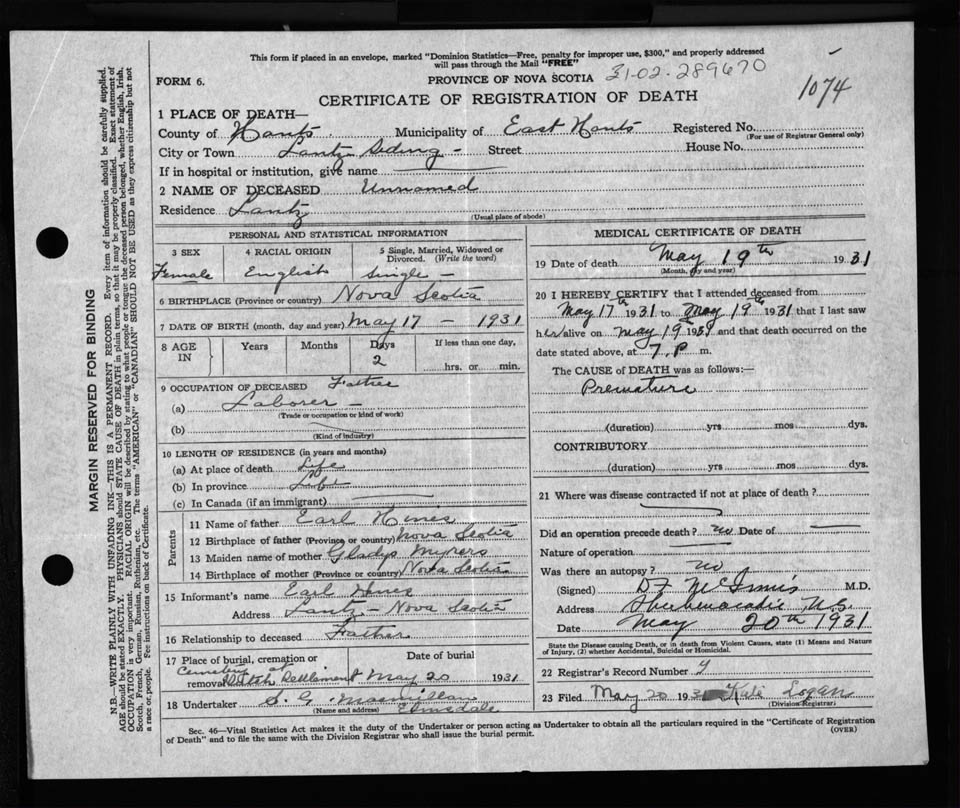 This form if placed in an envelope, marked "Dominion Statistics—Free, penalty for improper use, $300," and properly addressed
will pass through the Mail "FREE"
FORM 6.
PROVINCE OF NOVA SCOTIA
31-02-289670
1074
CERTIFICATE OF REGISTRATION OF DEATH
1 PLACE OF DEATH—
County of Hants Municipality of East Hants Registered No.
(For use of Registrar General only)
City or Town Lantz Siding - Street House No.
If in hospital or institution, give name
2 NAME OF DECEASED Unnamed
Residence Lantz
(Usual place of abode)
PERSONAL AND STATISTICAL INFORMATION
3 SEX 4 RACIAL ORIGIN 5 Single, Married, Widowed or
Divorced. (Write the word)
Female English Single -
6 BIRTHPLACE (Province or country) Nova Scotia
7 DATE OF BIRTH (month, day and year) May 17 - 1931
8 AGE
IN
Years Months Days If less than one day,
2
hrs. or min.
9 OCCUPATION OF DECEASED Father
(a) Laborer -
(Trade or occupation or kind of work)
(b)
(Kind of industry)
10 LENGTH OF RESIDENCE (in years and months)
(a) At place of death Life
(b) In province Life
(c) In Canada (if an immigrant)
Parents
11 Name of father Earl Hines
12 Birthplace of father (Province or country) Nova Scotia
13 Maiden name of mother Gladys Myers
14 Birthplace of mother (Province or country) Nova Scotia
15 Informant's name Earl Hines
Address Lantz - Nova Scotia
16 Relationship to deceased Father
17 Place of burial, cremation or Date of burial
Cemetery at
removal Dutch Settlement May 20 1931
18 Undertaker S. G. Macmillan
(Name and address) Elmsdale
MEDICAL CERTIFICATE OF DEATH
19 Date of death May 19th 1931
(Month, day and year)
20 I HEREBY CERTIFY that I attended deceased from
May 17th 1931 to May 19th 1931 that I last saw
her alive on May 19th 1931 and that death occurred on the
date stated above, at 7 P m.
The CAUSE of DEATH was as follows:—
Premature
(duration) yrs mos dys.
CONTRIBUTORY
(duration) yrs mos dys.
21 Where was disease contracted if not at place of death?
Did an operation precede death? no Date of
Nature of operation
Was there an autopsy? no
(Signed) D F McInnis M.D.
Address Shubenacadie N.S.
Date May 20th 1931
State the Disease causing Death, or in death from Violent Causes, state (1) Means and Nature
of Injury, (2) whether Accidental, Suicidal or Homicidal.
22 Registrar's Record Number
23 Filed May 20 1931 Kate Logan
(Division Registrar)
Sec. 46—Vital Statistics Act makes it the duty of the Undertaker or person acting as Undertaker to obtain all the particulars required in the "Certificate of Registration
of Death" and to file the same with the Division Registrar who shall issue the burial permit.
(OVER)
MARGIN RESERVED FOR BINDING
N.B.—WRITE PLAINLY WITH UNFADING INK—THIS IS A PERMANENT RECORD. Every item of information should be carefully supplied.
AGE should be stated EXACTLY. PHYSICIANS should STATE CAUSE OF DEATH in plain terms, so that it may be properly classified. Exact statement of
OCCUPATION is very important. RACIAL ORIGIN will be described by stating to what people or tongue the deceased person belonged, whether English, Irish,
Scotch, French, German, Russian, Ruthenian, etc. The terms "AMERICAN" or "CANADIAN" SHOULD NOT BE USED as they express citizenship but not
a race or people. Fee instructions on back of Certificate.